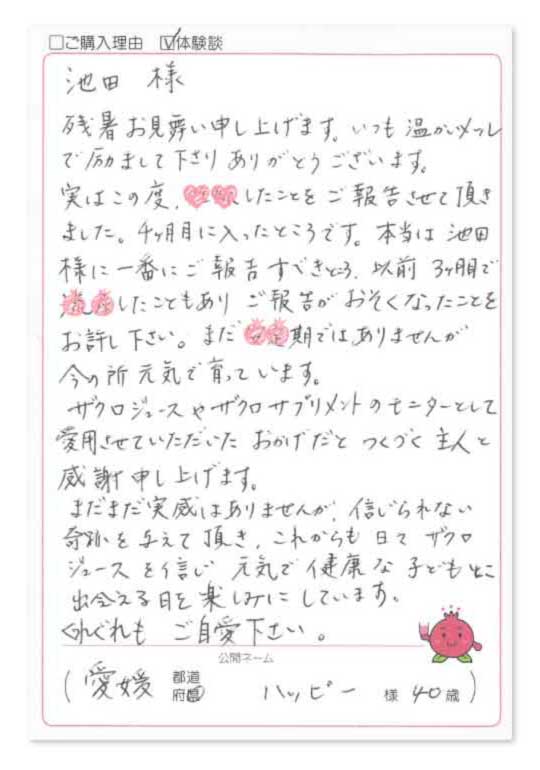 □ご購入理由 ☑体験談
池田 様
残暑お見舞い申し上げます。いつも温かいメッセ
で励まして下さりありがとうございます。
実はこの度、したことをご報告させて頂き
ました。4ヶ月目に入ったところです。本当は池田
様に一番にご報告すべきところ、以前3ヶ月で
したこともありご報告がおそくなったことを
お許し下さい。まだ期ではありませんが
今の所元気で育っています。
ザクロジュースやザクロサプリメントのモニターとして
愛用させていただいたおかげだとつくづく主人と
感謝申し上げます。
まだまだ実感はありませんが、信じられない
奇跡を与えて頂き、これからも日々ザクロ
ジュースを信じ元気で健康な子どもとに
出会える日を楽しみにしています。
くれぐれもご自愛下さい。
公開ネーム
(愛媛 都道府県 ハッピー 様 40歳)